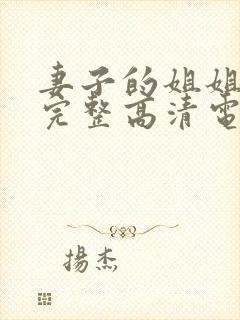 妻子的姐姐
完整高清電
揚杰